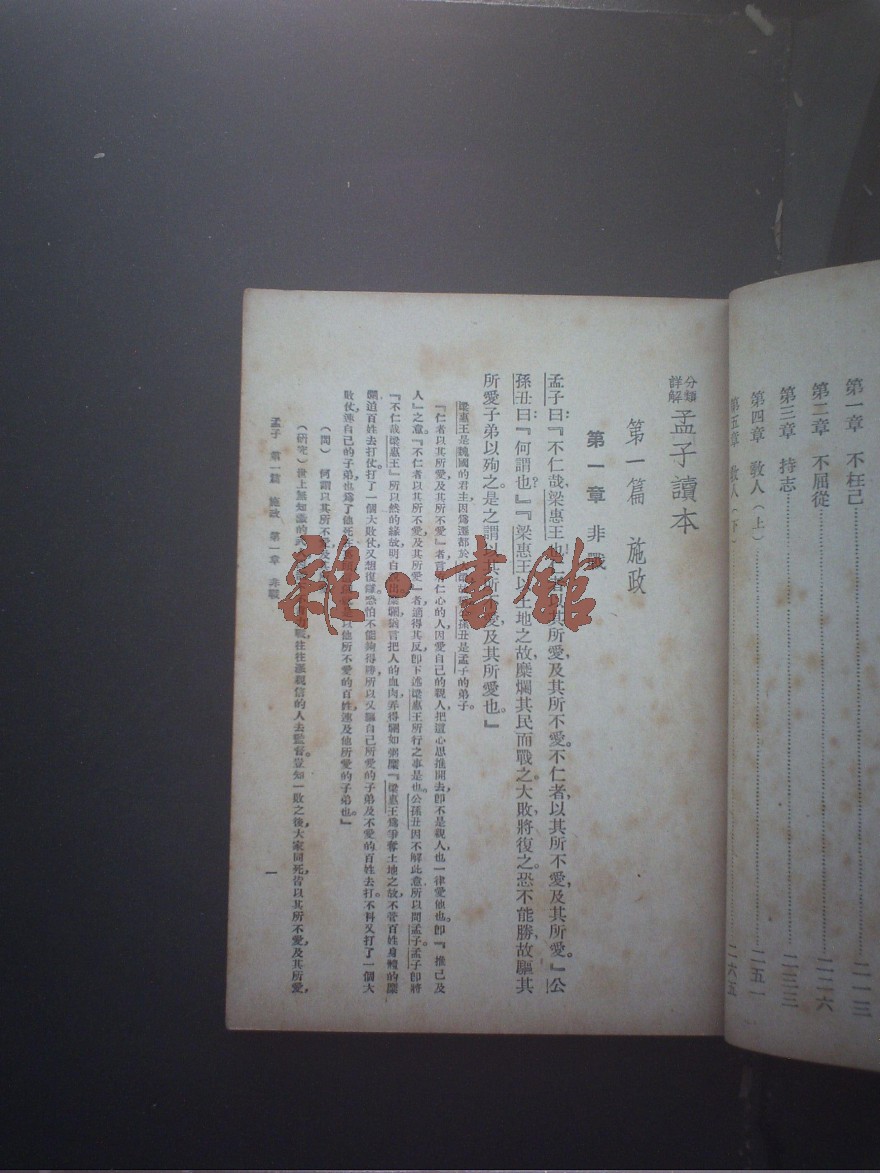 第一章 不枉己 二一三
第二章 不屈從 二二六
第三章 持志 二三三
第四章 教人（上） 二五一
第五章 教人（下） 二六五
分類詳解 孟子讀本
第一篇 施政
第一章 非戰
孟子曰：『不仁哉梁惠王也！者以其所愛，及其所不愛。不仁者，以其所不愛，及其所愛。』公
孫丑曰：『何謂也？』『梁惠王以土地之故，糜爛其民而戰之，大敗，將復之，恐不能勝，故驅其
所愛子弟以殉之，是之謂以其所不愛，及其所愛也。』
梁惠王是魏國的君主，因爲遷都於孫丑是孟子的弟子。
『仁者以其所愛，及其所不愛』者，言仁心的人，因愛自己的親人，把這心思推開去，卽不是親人，也一律愛他也。卽『推己及
人』之意。『不仁者以其所不愛，及其所愛』者，適得其反，卽下述梁惠王所行之事是也。公孫丑因不解此意，所以問孟子。孟子卽將
『不仁哉梁惠王』所以然的緣故，明白說出。糜爛，猶言把人的血肉弄得爛如粥糜。『梁惠王爲爭奪土地之故，不管百姓身體的糜
爛，迫百姓去打仗，打了一個大敗仗，又想復讎，恐怕不能夠得勝，所以又驅自己所愛的子弟及不愛的百姓去打，不料又打了一個大
敗仗，連自己的子弟，也爲了他死以他所不愛的百姓，連及他所愛的子弟也。』
（問） 何謂以其所不愛，及其
（研究）世上無知識的戰，往往派親信的人去監督。豈知一敗之後，大家同死，皆以其所不愛，及其所愛，
孟子 第一篇 施政 第一章 非戰 一
雜·書館